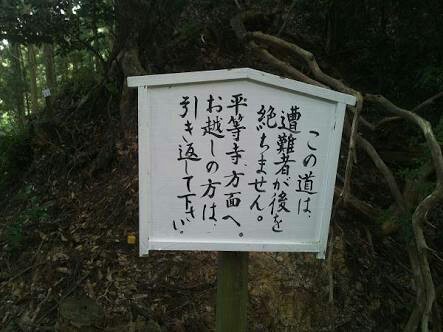 この道は、
遭難者が後を
絶ちません。
平等寺方面へ。
お越しの方は、
引き返して下さい。